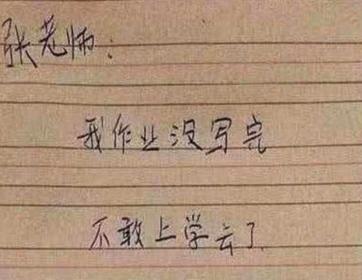 张老师：
我作业没写完
不敢上学去了